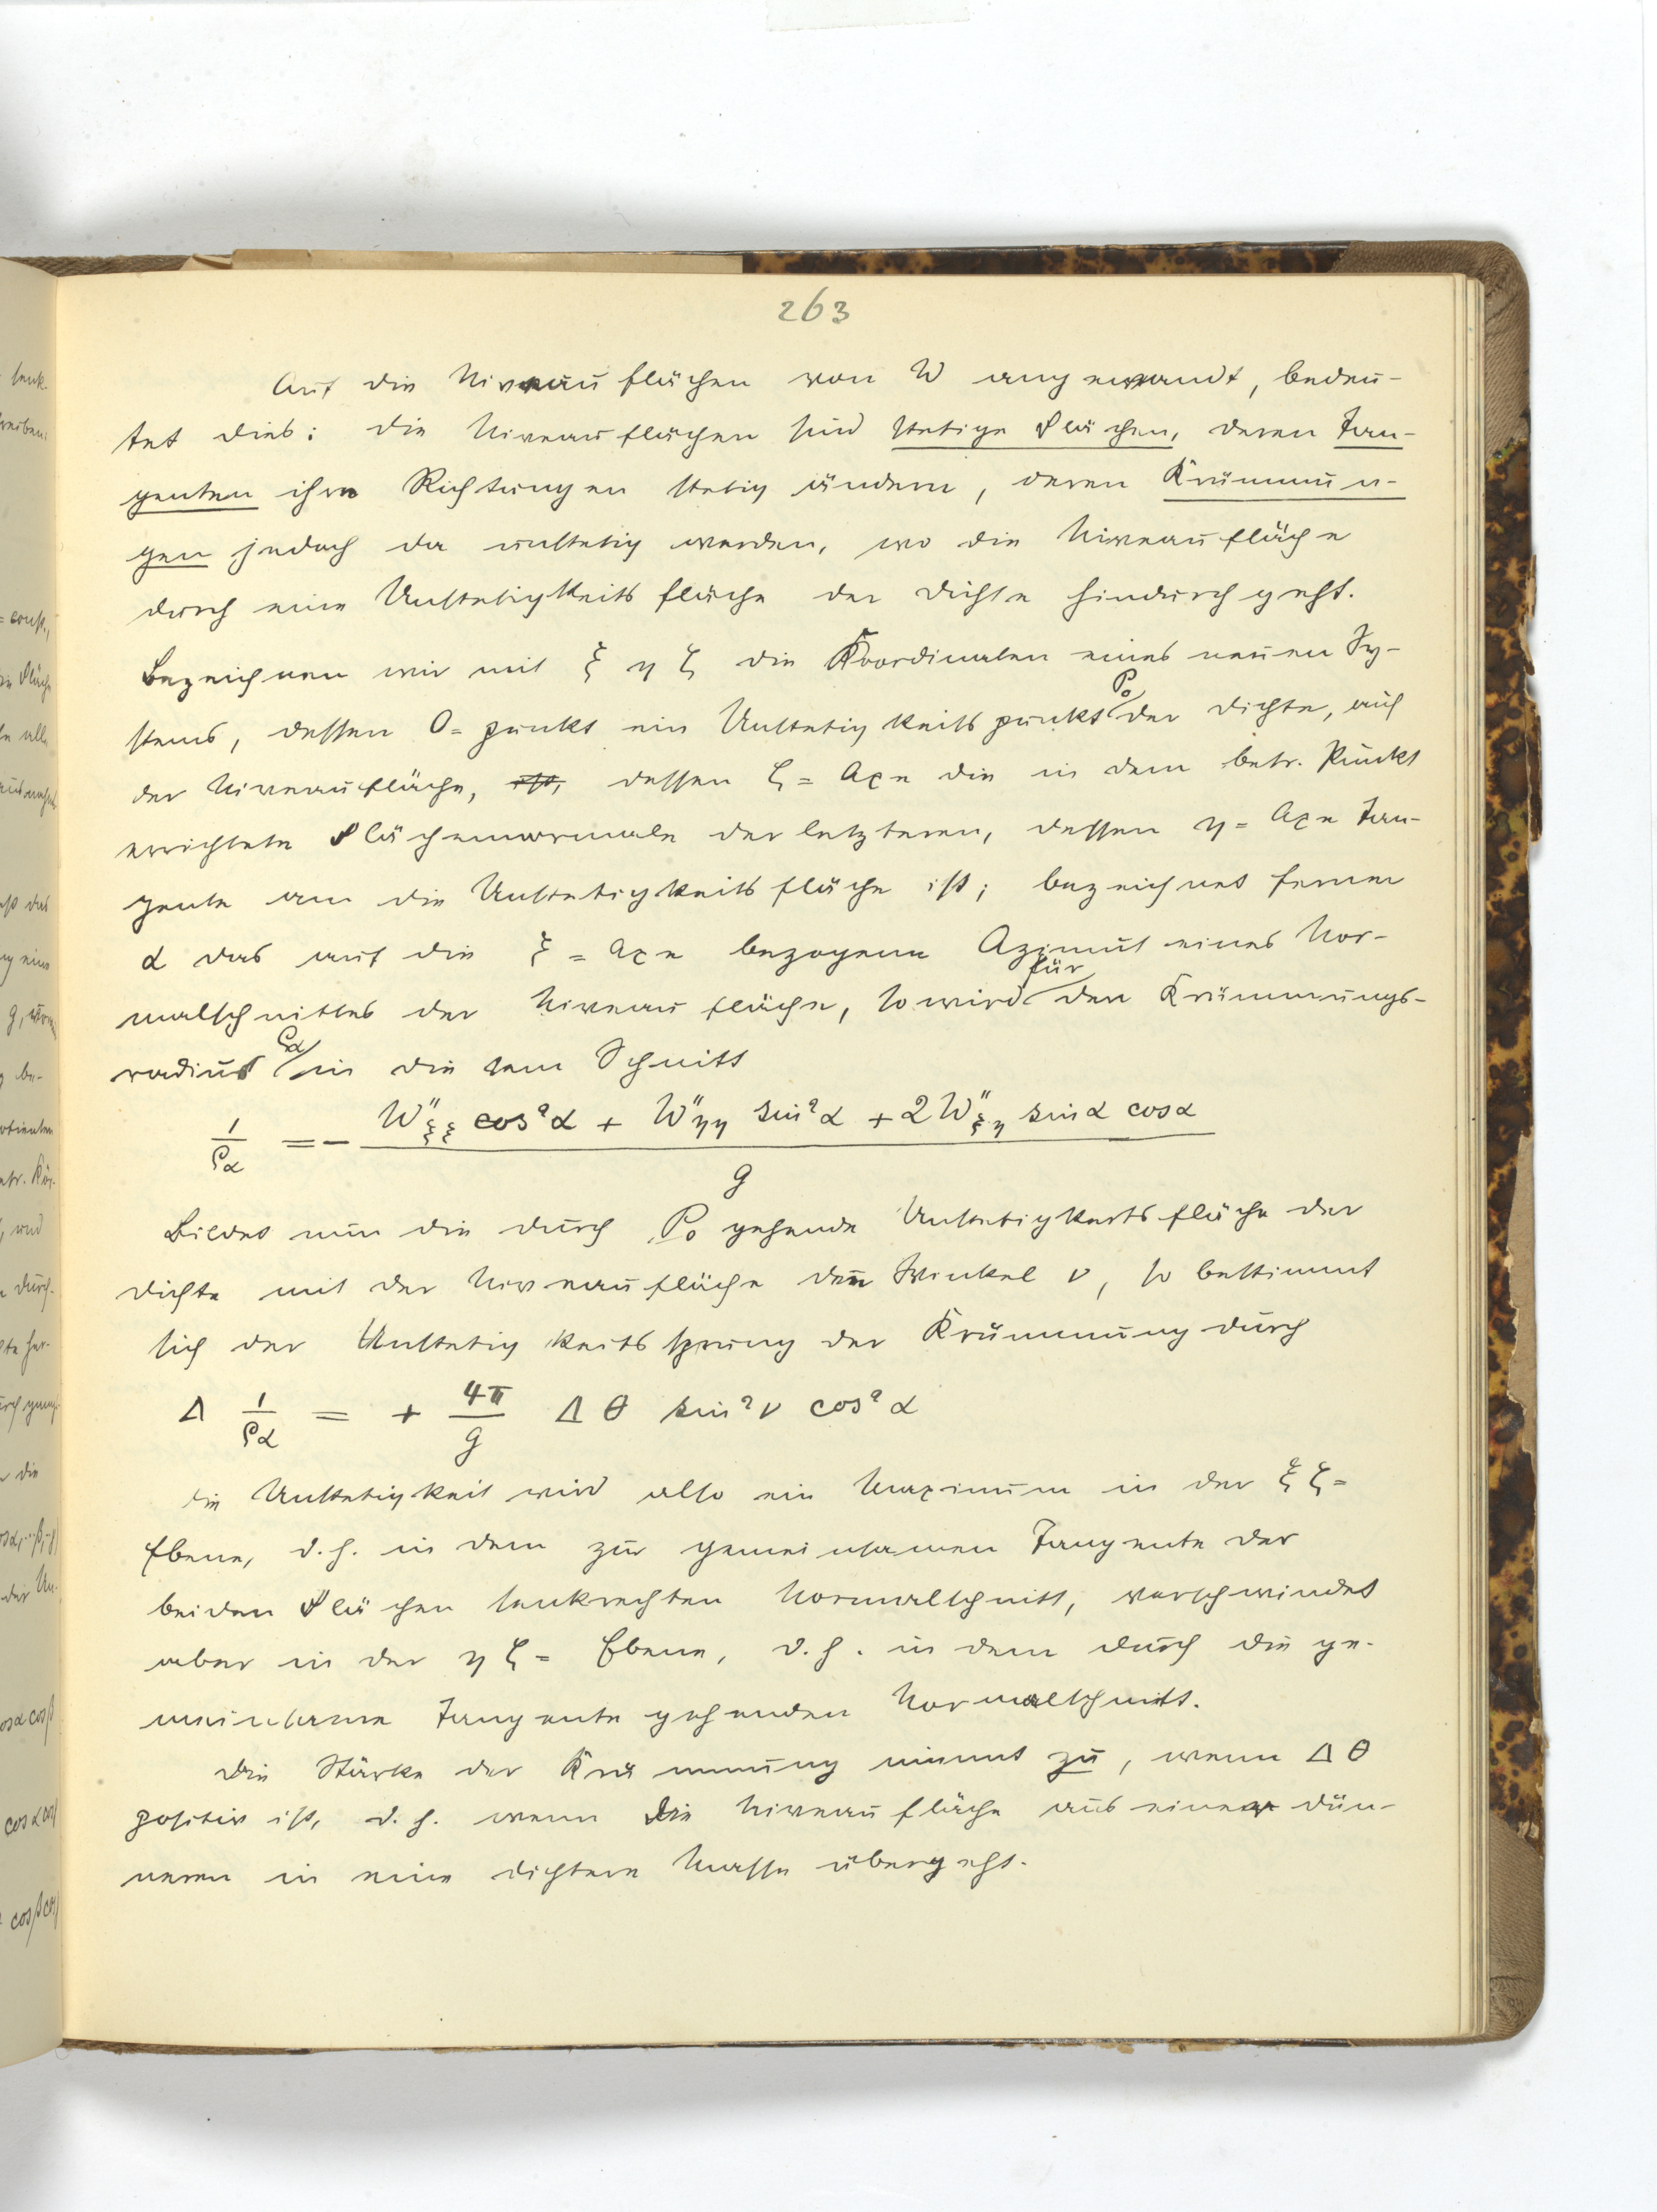 263
Auf die Niveauflächen von W angewandt, bedeu-
tet dies: die Niveauflächen sind stetige Flächen, deren Tan-
genten ihre Richtungen stetig ändern, deren Krümmun-
gen jedoch da unstetig werden, wo die Niveaufläche
durch eine Unstetigkeitsfläche der Dichte hindurchgeht.
Bezeichnen wir mit ξ η ζ die Koordinaten eines neuen Sy-
stems, dessen 0=punkt ein Unstetigkeitspunkt P₀ der Dichte, auf
der Niveaufläche, ist, dessen ζ=Axe die in dem betr. Punkt
errichtete Flächennormale der letzteren, dessen η=Axe Tan-
gente an die Unstetigkeitsfläche ist; bezeichnet ferner
α das auf die ξ=Axe bezogene Azimut eines Nor-
malschnittes der Niveaufläche, so wird für den Krümmungs-
radius ρα in diesem Schnitt
1/ρα = - (W''ξξ cos²α + W''ηη sin²α + 2W''ξη sinα cosα)/g
Bildet nun die durch P₀ gehende Unstetigkeitsfläche der
Dichte mit der Niveaufläche den Winkel ν, so bestimmt
sich der Unstetigkeitssprung der Krümmung durch
Δ 1/ρα = + 4π/g Δθ sin²ν cos²α
Die Unstetigkeit wird also ein Maximum in der ξζ=
Ebene, d.h. in dem zur gemeinsamen Tangente der
beiden Flächen senkrechten Normalschnitt, verschwindet
aber in der ηζ=Ebene, d.h. in dem durch die ge-
meinsame Tangente gehenden Normalschnitt.
Die Stärke der Krümmung nimmt zu, wenn Δθ
positiv ist, d.h. wenn die Niveaufläche aus einer dün-
neren in eine dichtere Masse übergeht.